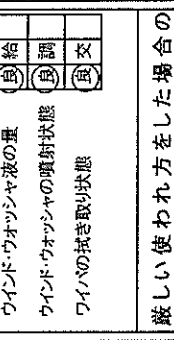 ウインド・ウォッシャ液の量 良 給
ウインド・ウォッシャの噴射状態 良 調
ワイパの拭き取り状態 良 交
厳しい使われ方をした場合の